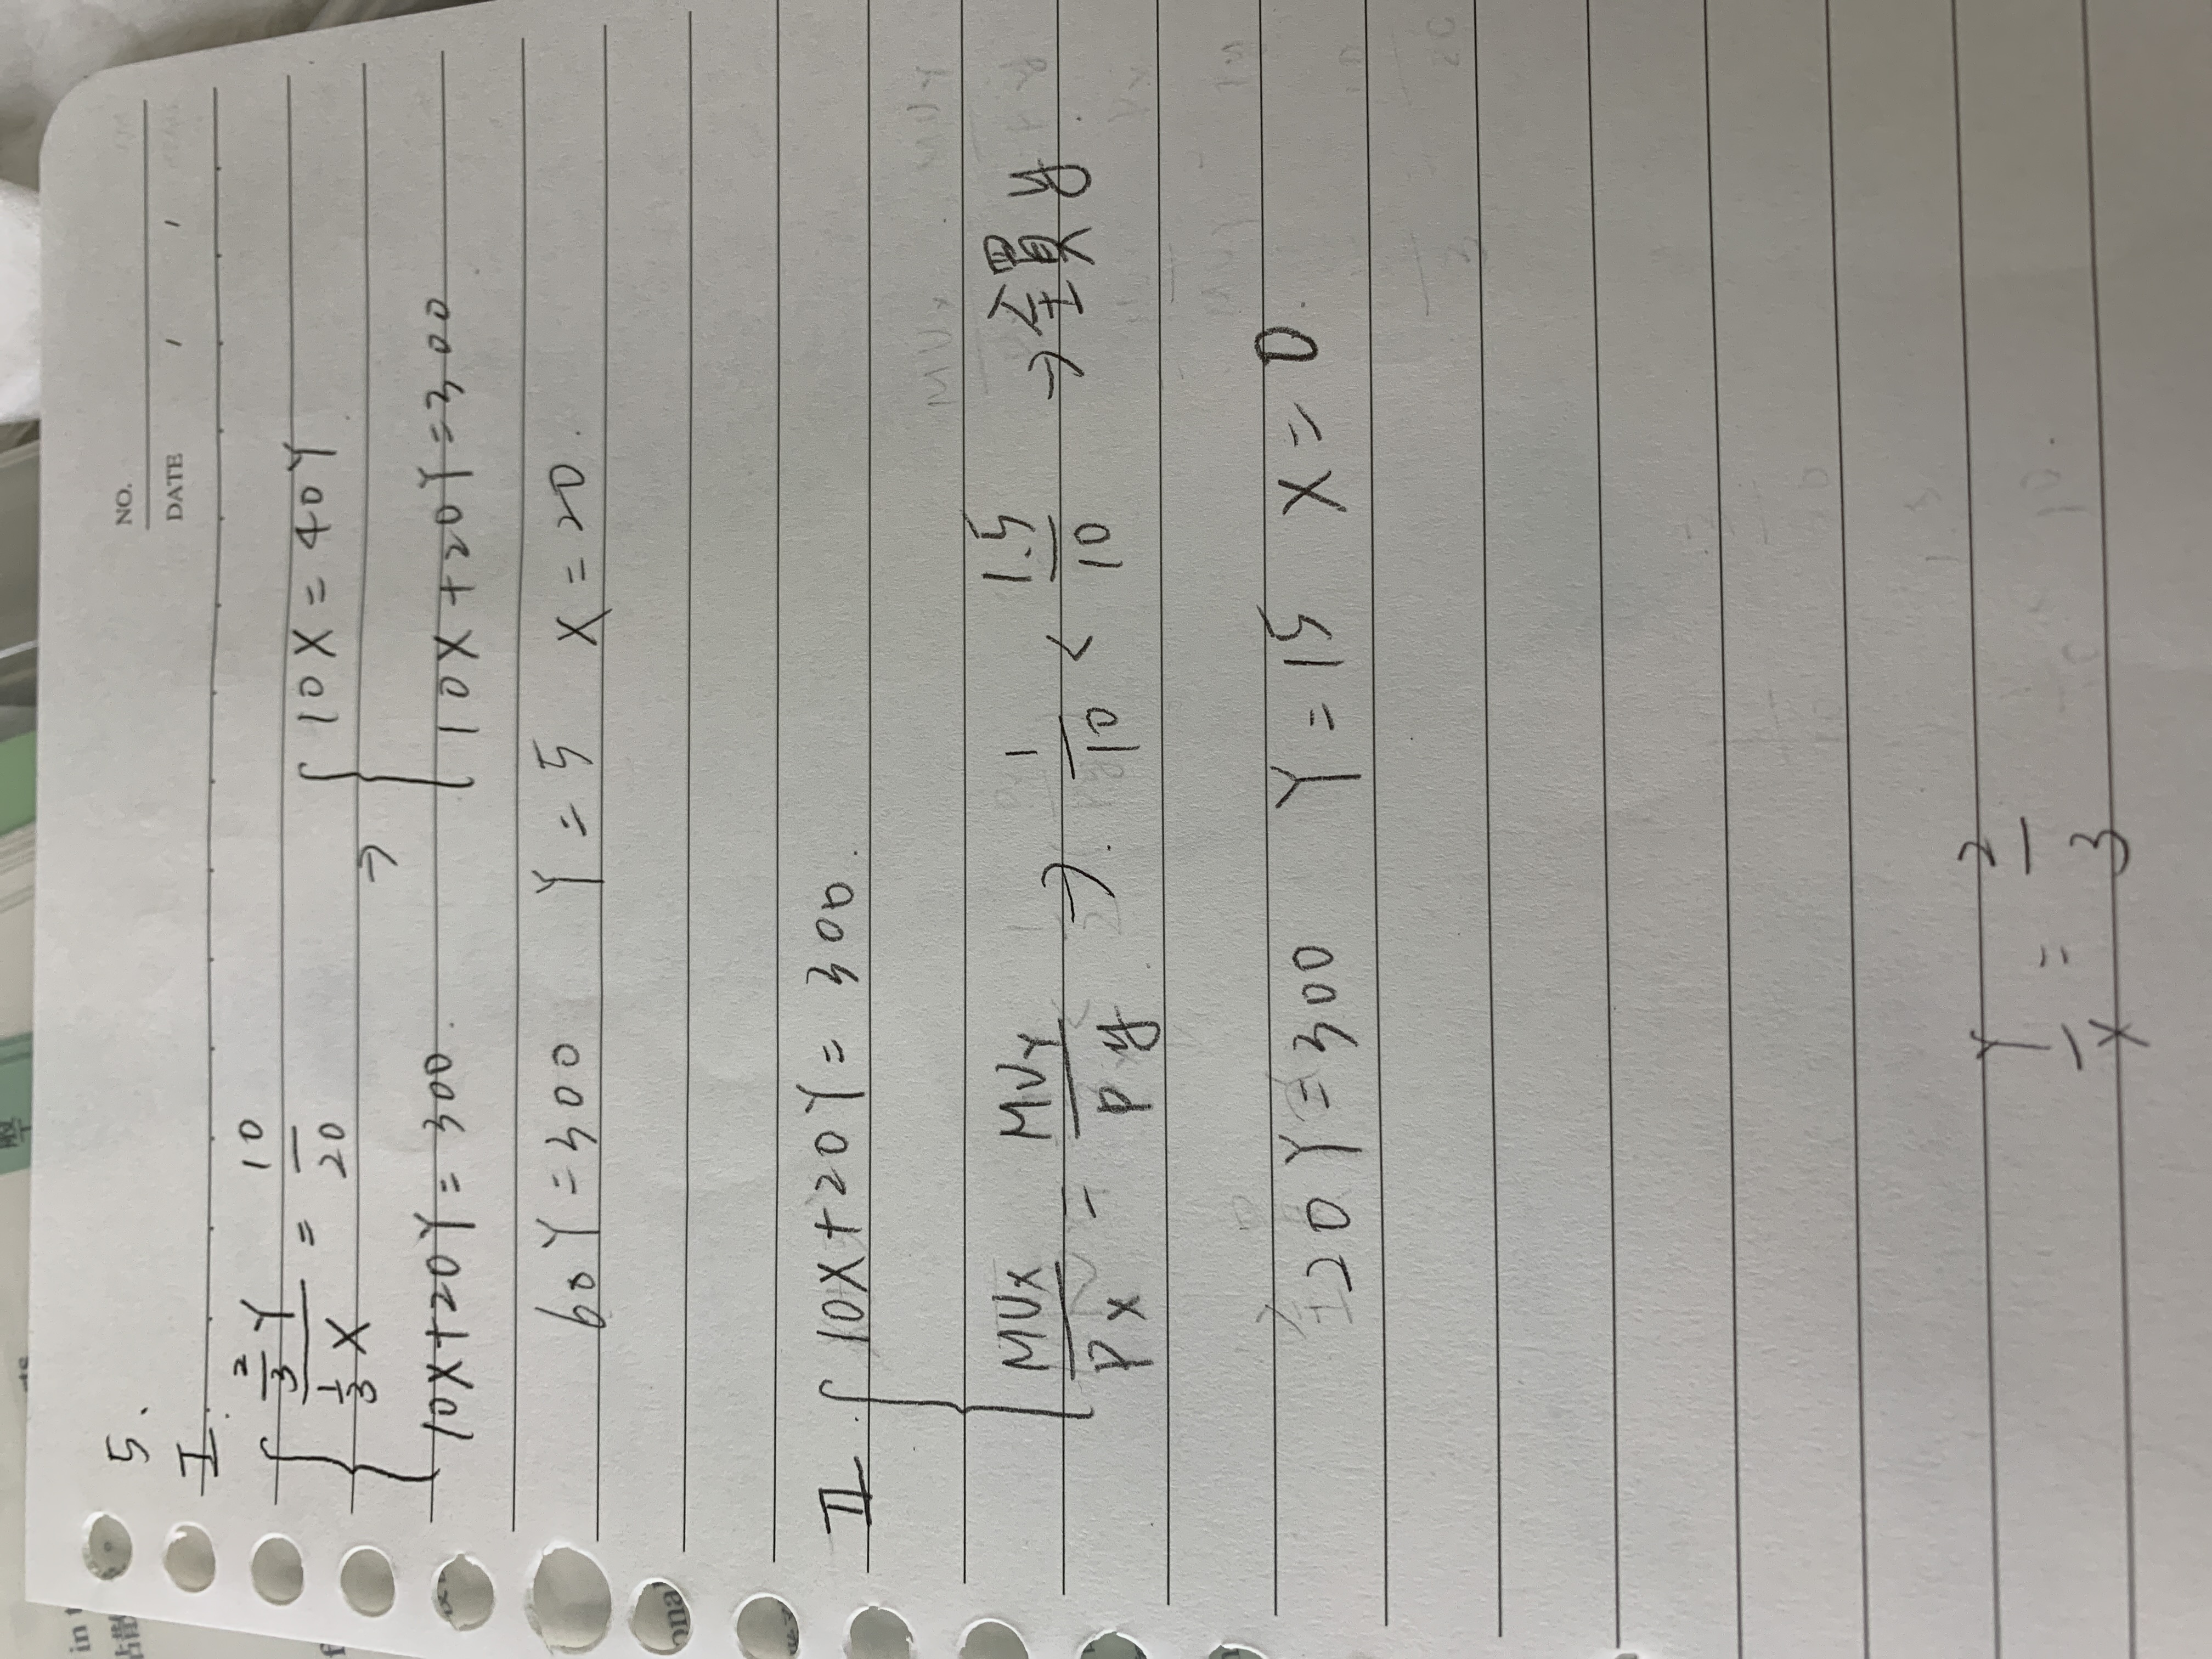 in t
5.
NO.
DATE / /
I.
\frac{\frac{2}{3}Y}{\frac{1}{3}X} = \frac{10}{20}
10X+20Y=300.
→
10X=40Y
10X+20Y=300
60Y=300 Y=5 X=20.
onal
II. 10X+20Y=300.
\frac{MUx}{Px} = \frac{MUy}{Py} → \frac{1}{10} < \frac{1.5}{10} → 全買y
20Y=300 Y=15 X=0.
\frac{Y}{X} = \frac{2}{3}